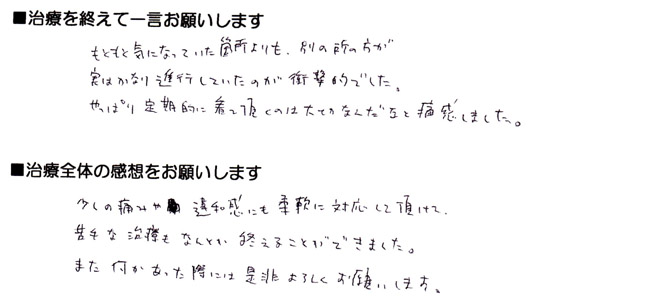 ■治療を終えて一言お願いします
もともと気になっていた箇所よりも、別の所の方が
実はかなり進行していたのが衝撃的でした。
やっぱり定期的に看て頂くのは大切なんだなと痛感しました。
■治療全体の感想をお願いします
少しの痛みや違和感にも柔軟に対応して頂けて、
苦手な治療もなんとか終えることができました。
また何かあった際には是非よろしくお願いします。